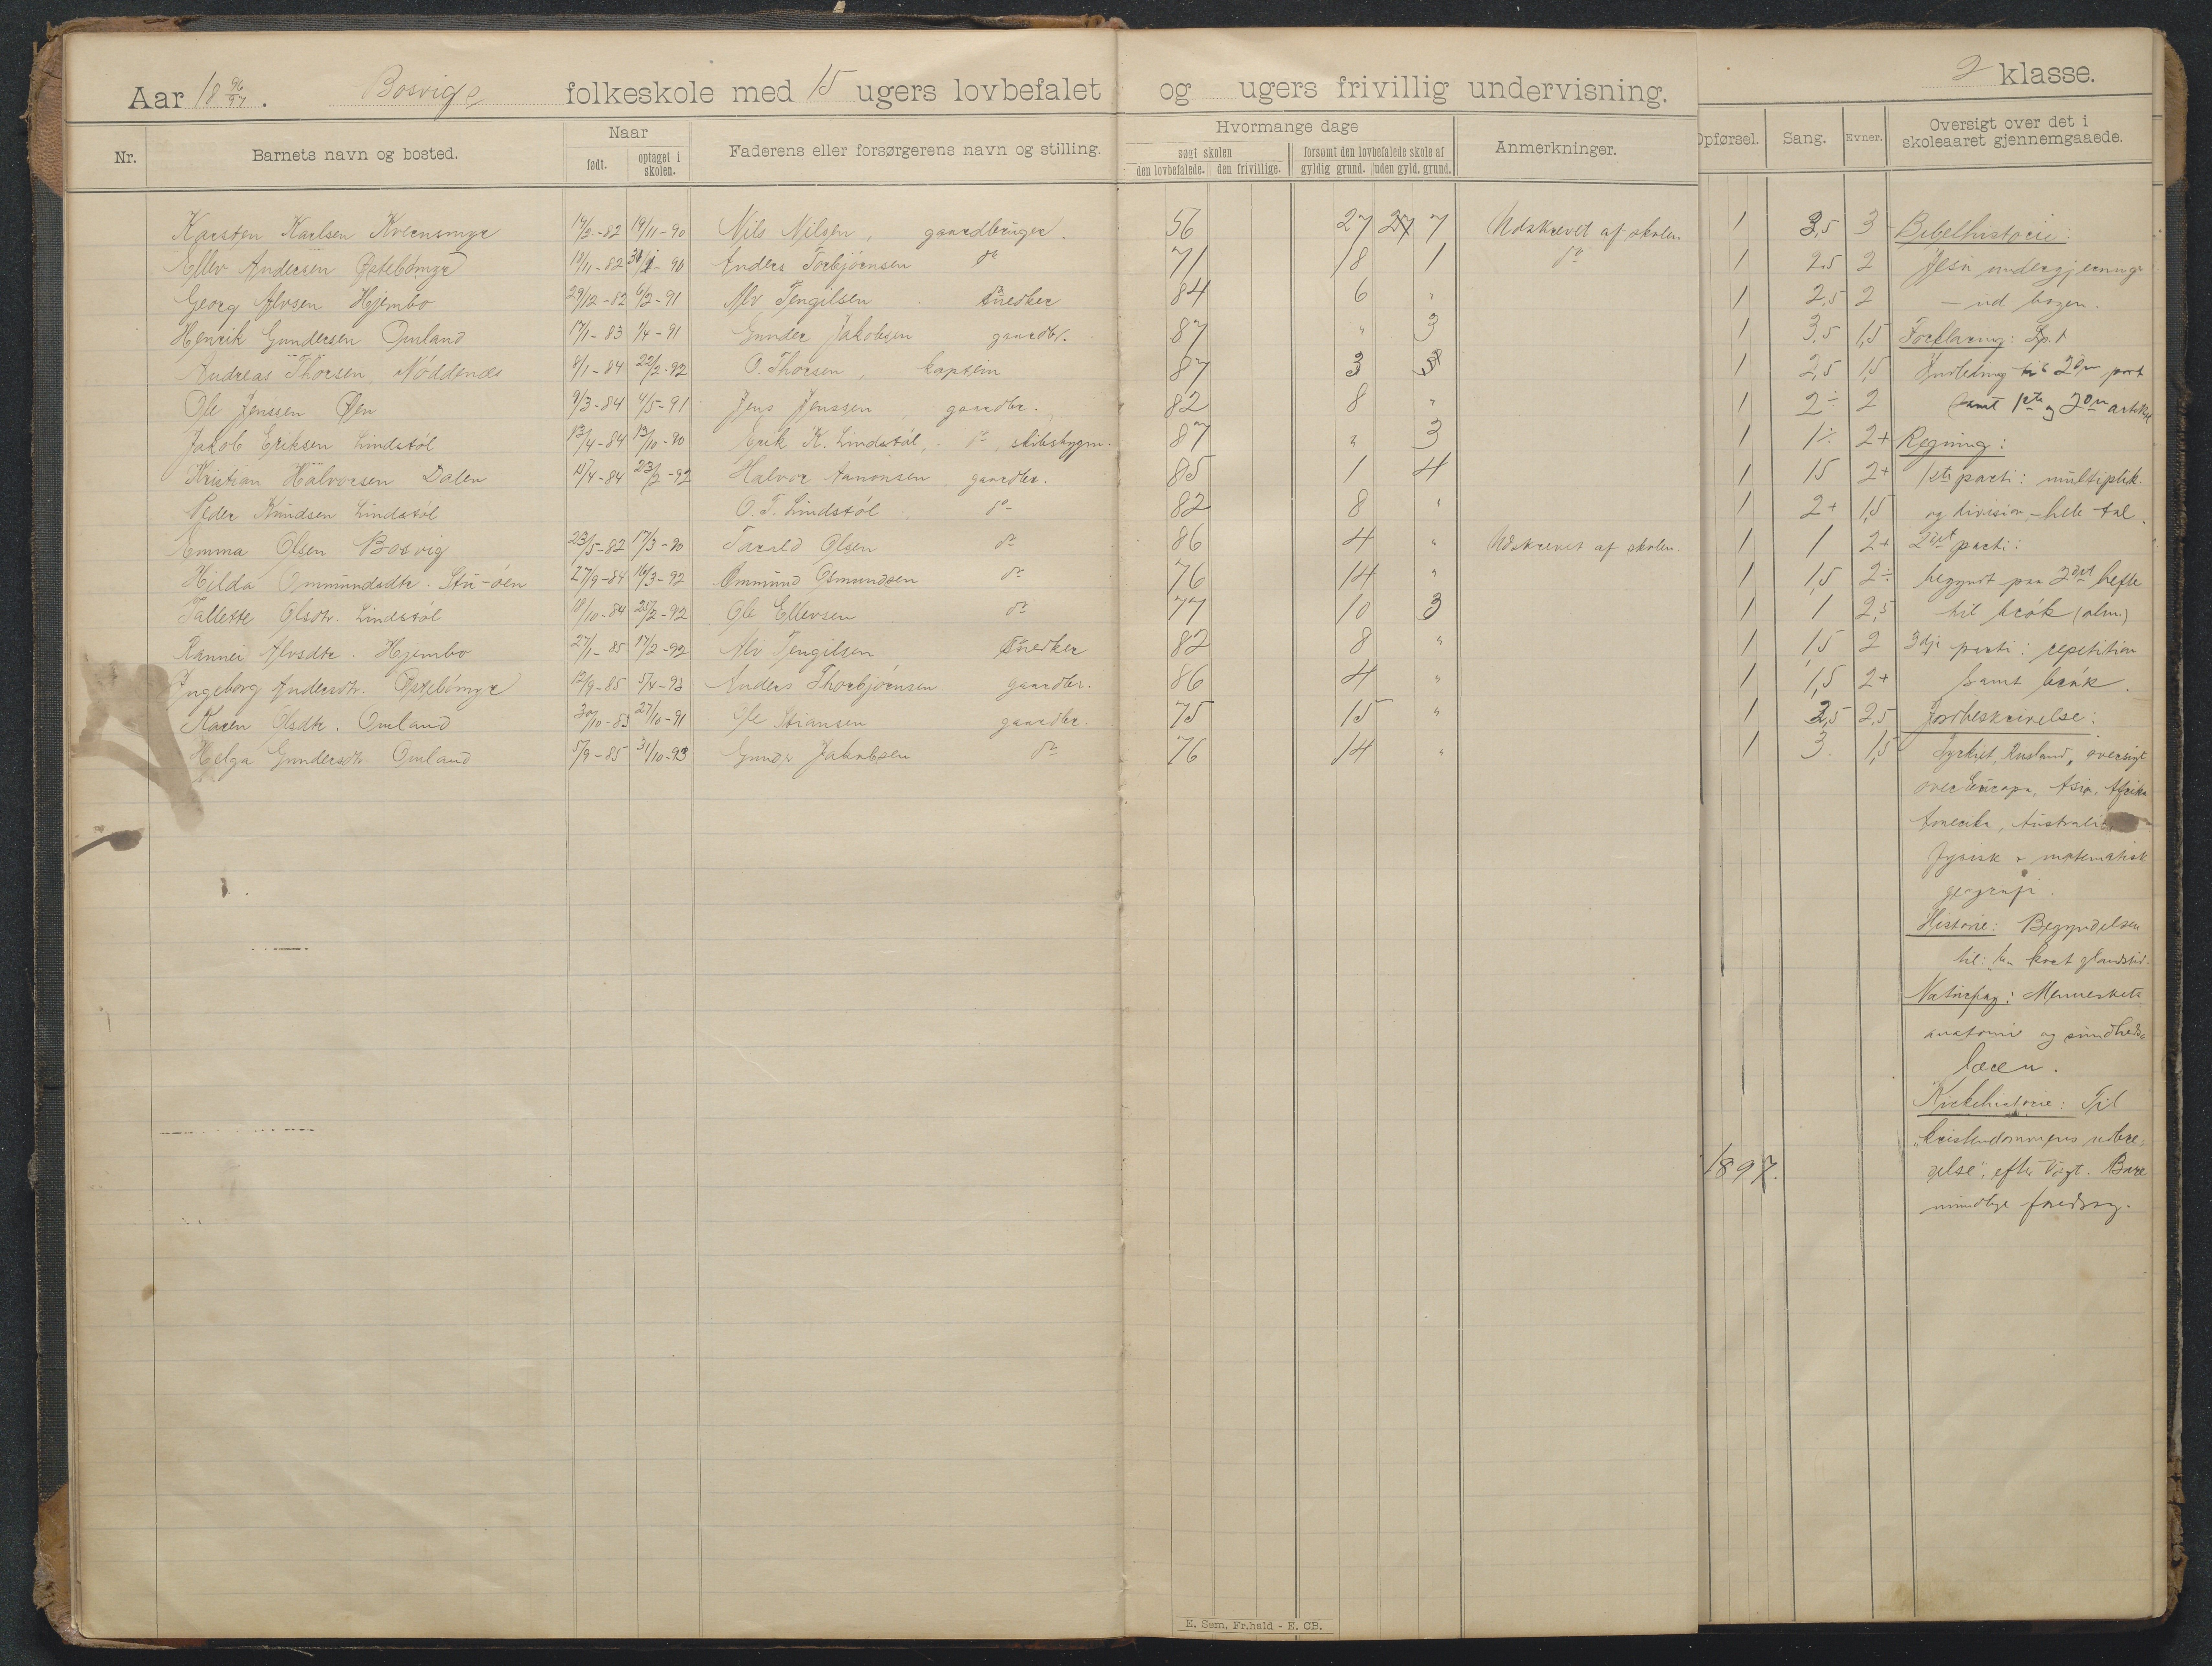 Aar 18 96/97. Bosvig folkeskole med 15 ugers lovbefalet og ugers frivillig undervisning. 2 klasse.
Nr. Barnets navn og bosted. Naar født. optaget i skolen. Faderens eller forsørgerens navn og stilling. Hvormange dage søgt skolen den lovbefalede. den frivillige. forsømt den lovbefalede skole af gyldig grund. uden gyld. grund. Anmerkninger. Opførsel. Sang. Evner. Oversigt over det i skoleaaret gjennemgaaede.
Karsten Karlsen Kvernsmyr 82 19/11-90 Nils Nilsen, gaardbruger. 56 27 7 Udskrevet af skolen. 1 3,5 3 Bibelhistorie:
Ellev Andersen Østebömyr 19/11-82 90 Anders Torbjörnsen do 71 18 1 do 1 2,5 2 Jesu undergjerninger
Georg Alvsen Hjembo 29/12-82 6/2-91 Alv Tengilsen snedker 84 6 " 1 2,5 2 – ud bogen.
Henrik Gundersen Omland 17/1-83 1/4-91 Gunder Jakobsen gaardbr. 87 " 3 1 3,5 1,5 Forklaring: Sp. 1
Andreas Thorsen, Nöddenæs 8/1-84 22/2-92 O. Thorsen, kaptein 87 3 1 2,5 1,5 Indledning til 2den part
Ole Jenssen Øen 9/3-84 4/5-91 Jens Jenssen gaardbr. 82 8 " 1 2÷ 2 samt 1ste og 2den artikel
Jakob Eriksen Lindstöl 13/4-84 13/10-90 Erik K. Lindstöl, do, skibsbygm. 87 " 3 1 1÷ 2+ Regning:
Kristian Halvorsen Dalen 4-84 23/2-92 Halvor Aanonsen gaardbr. 85 1 4 1 1,5 2+ 1ste parti: multiplik.
Peder Knudsen Lindstöl O. T. Lindstöl do 82 8 " 1 2+ 1,5 og division – hele tal.
Emma Olsen Bosvig 23/5-82 17/3-90 Tarald Olsen do 86 4 " Udskrevet af skolen. 1 1 2+ 2det parti:
Hilda Ommundsdtr. Stu-öen 27/9-84 16/3-92 Ommund Osmundsen do 76 14 " 1 1,5 2÷ begyndt paa 2det hefte
Tallette Olsdtr. Lindstöl 18/10-84 25/2-92 Ole Ellevsen do 77 10 3 1 1 2,5 til brök (alm.)
Rannei Alvsdtr. Hjembo 27/1-85 17/2-92 Alv Tengilsen snedker 82 8 " 1 1,5 2 3dje parti: repetition
Ingeborg Andersdtr. Østebömyr 12/9-85 5/4-93 Anders Thorbjörnsen gaardbr. 86 4 " 1 1,5 2+ samt brök.
Karen Olsdtr. Omland 30/10-83 27/10-91 Ole Stiansen gaardbr. 75 15 " 1 2,5 2,5 Jordbeskrivelse:
Helga Gundersdtr. Omland 5/9-85 31/10-93 Gunder Jakobsen do 76 14 " 1 3. 1,5 Tyrkiet, Rusland, oversigt
over Europa, Asia, Afrika
Amerika, Australien
fysisk & matematisk
geografi.
Historie: Begyndelsen
til: "En kort glandstid.
Naturfag: Menneskets
anatomi og sundheds-
læren.
Kirkehistorie: Til
"kristendommens udbre-
1897. delse", efter Vogt. Bare
mundtlige foredrag.
E. Sem, Fr.hald - E. CB.